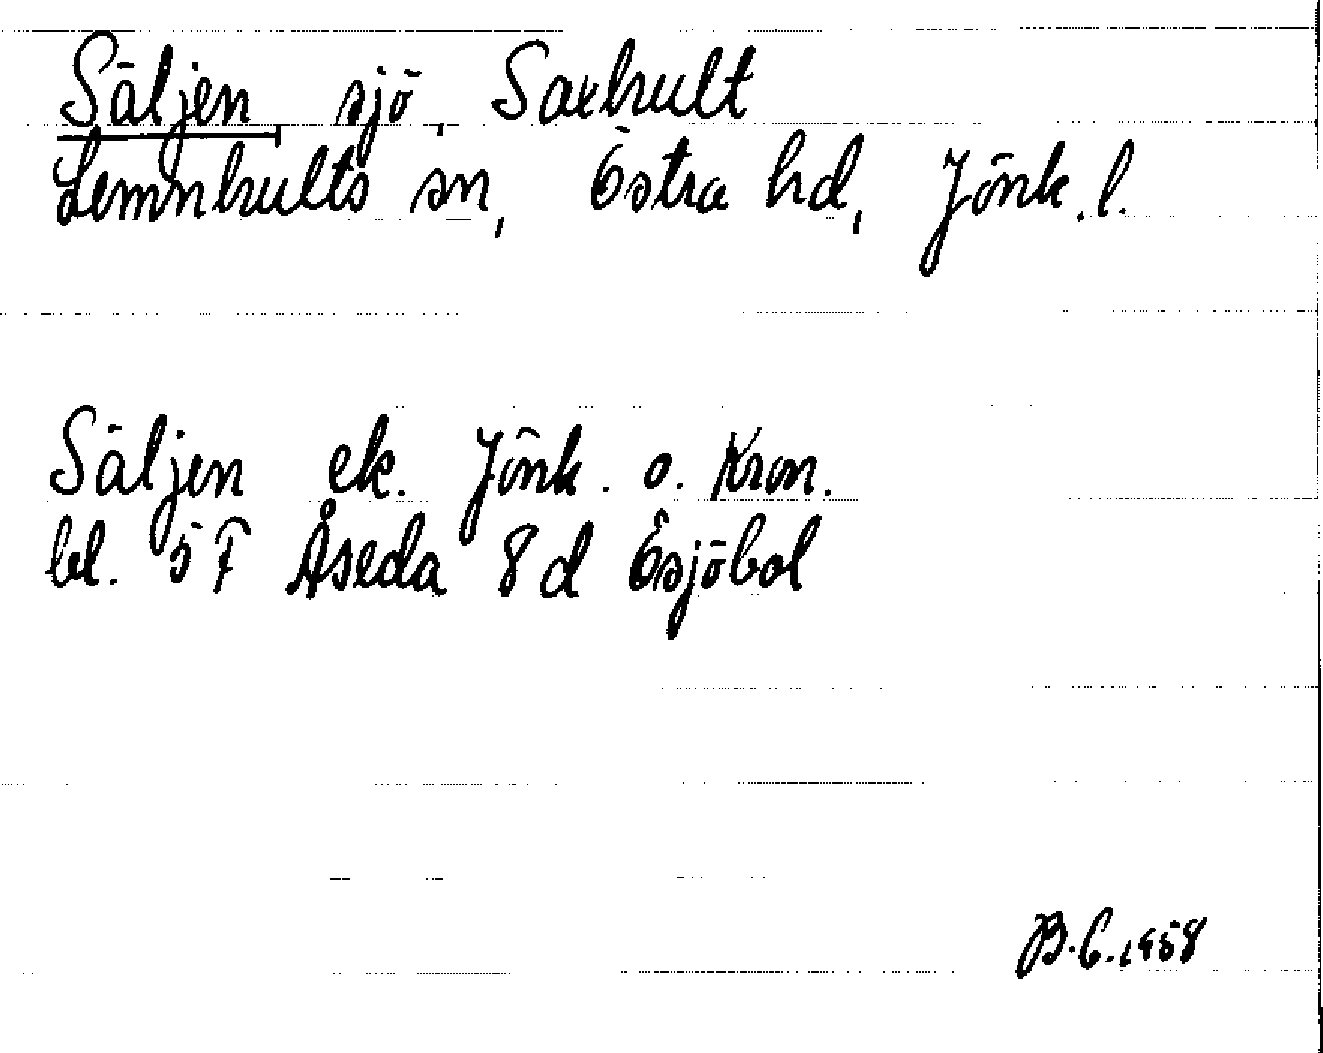 Säljen, sjö, Saxhult
Lemnhults sn, Östra hd, Jönk.l.
Säljen ek. Jönk. o. Kron.
bl. 5F Åseda 8d Ösjöbol
B.C. 1958